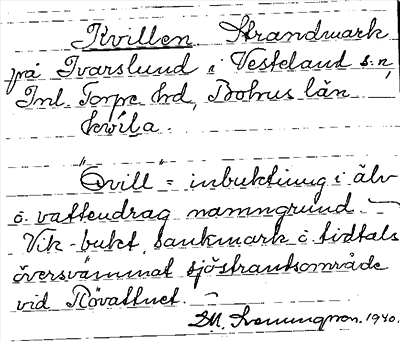 Kvillen Strandmark
på Ivarslund i Vesteland s:n,
Inl. Torpe hd, Bohus län
kvila.
"Qvill" = inbuktning i älv
o. vattendrag namngrund –
Vik-bukt, sankmark o. tidtals
översvämmat sjöstrandsområde
vid Rövattnet. –
1940.